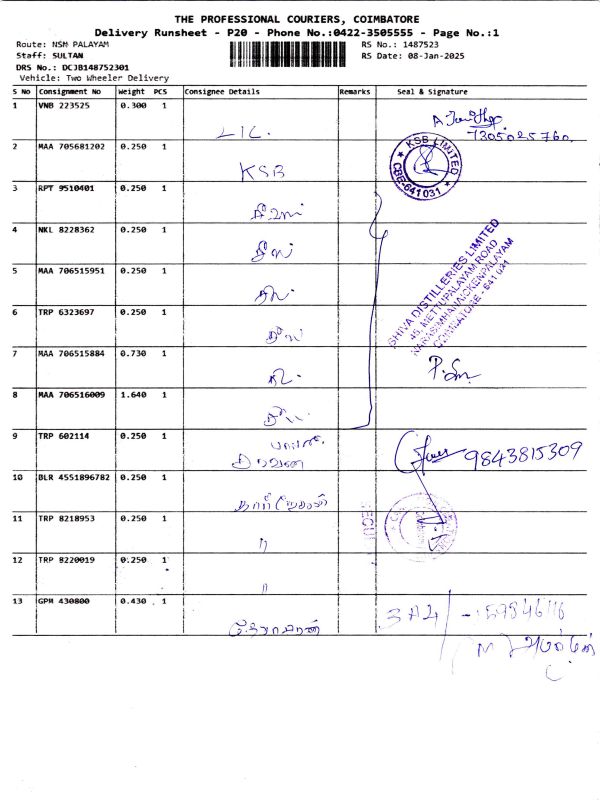 THE PROFESSIONAL COURIERS, COIMBATORE
Delivery Runsheet - P20 - Phone No.:0422-3505555 - Page No.:1
Route: NSM PALAYAM RS No.: 1487523
Staff: SULTAN RS Date: 08-Jan-2025
DRS No.: DCJB148752301
Vehicle: Two Wheeler Delivery
S No Consignment No Weight PCS Consignee Details Remarks Seal & Signature
1 VNB 223525 0.300 1 LIC.
7305025760.
2 MAA 705681202 0.250 1 KSB KSB LIMITED CBE-641031
3 RPT 9510401 0.250 1
4 NKL 8228362 0.250 1
SHIVA DISTILLERIES LIMITED
45, METTUPALAYAM ROAD
NARASIMHANAICKENPALAYAM
COIMBATORE - 641 031
5 MAA 706515951 0.250 1
6 TRP 6323697 0.250 1
7 MAA 706515884 0.730 1
8 MAA 706516009 1.640 1
9 TRP 602114 0.250 1 9843815309
10 BLR 4551896782 0.250 1
11 TRP 8218953 0.250 1 "
12 TRP 8220019 0.250 1 "
13 GPM 430800 0.430 1